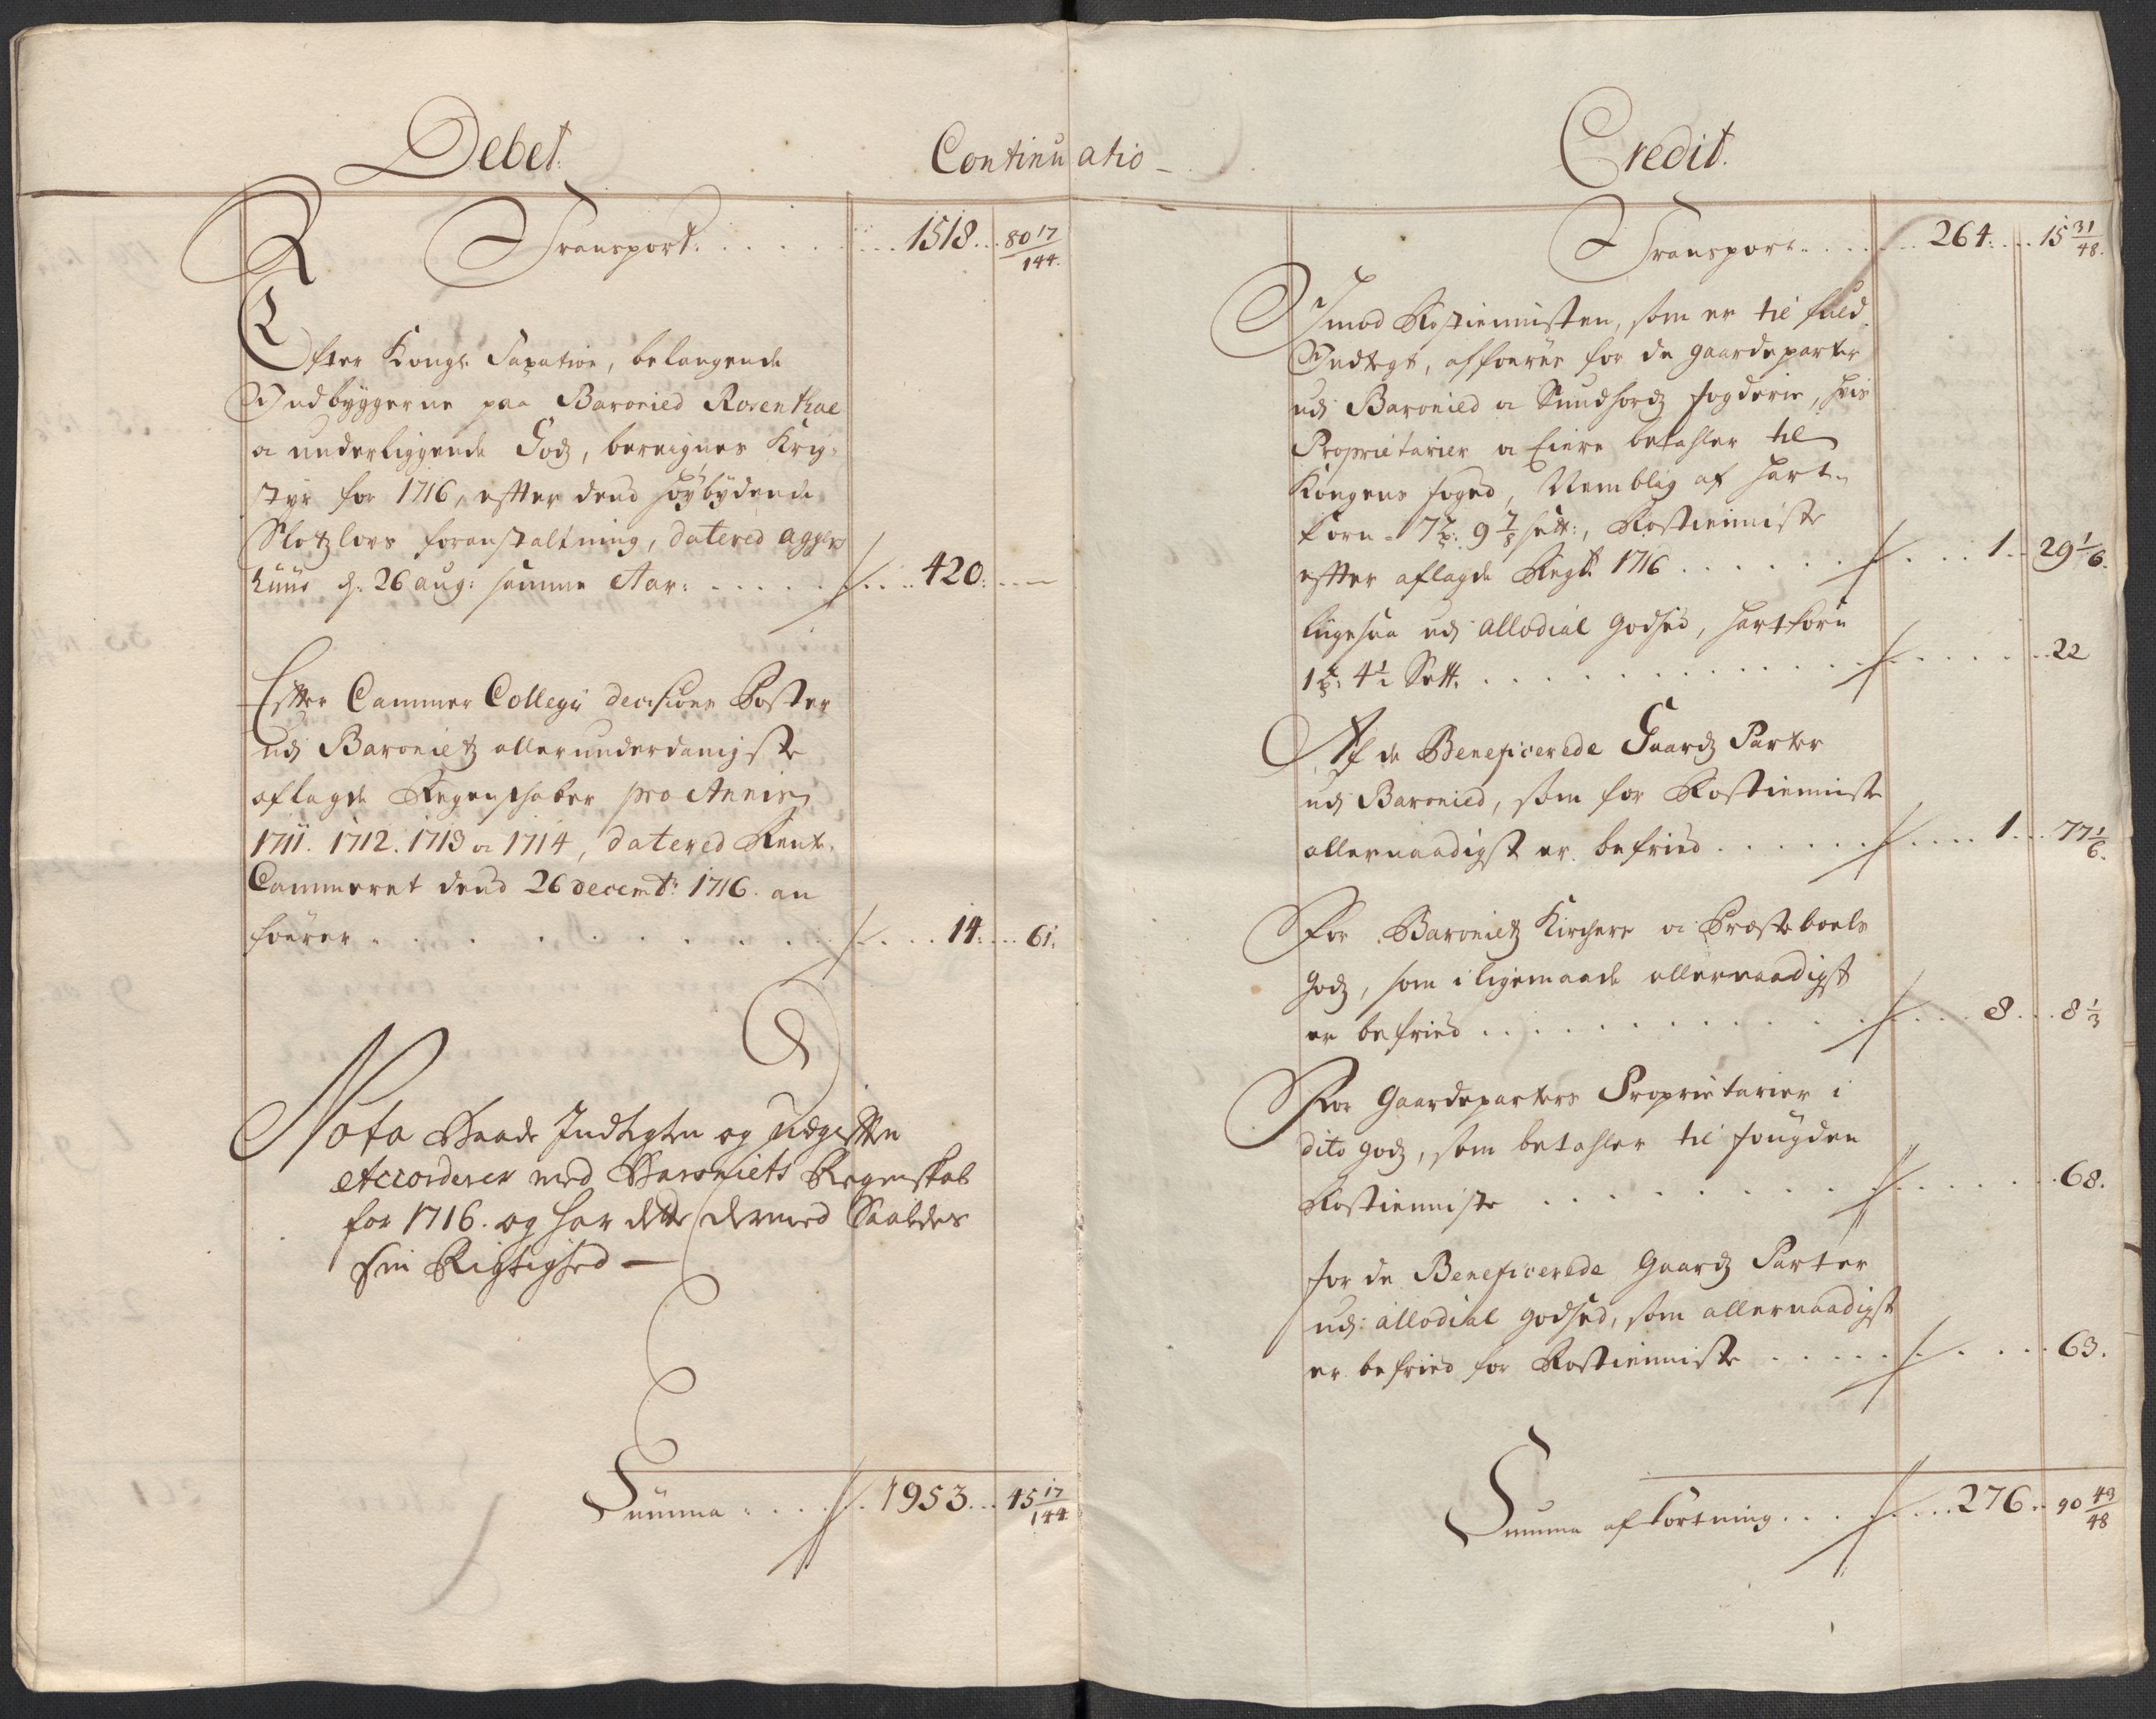 Debet.
Continuatio
Transport. 1518. 80 17/144.
Efter Kongl. Taxation, belangende
Indbyggerne paa Baronied Rosenthal
og underliggende Godz, beregnes Krig-
styr for 1716, effter dend höybydende
Slotzlovs foranstaltning, datered Agger-
huus d. 26 aug: samme Aar: 420.
Effter Cammer Collegii decisions Poster
udj Baronietz allerunderdanigste
aflagde Regenskaber pro Annis
1711. 1712. 1713 og 1714, datered Rente-
Cammeret dend 26 decembr: 1716. an
föerer 14. 61.
Nota Baade Indtegten og udgifften
Accorderer med Baroniets Regenskab
for 1716. og har dette dermed Saaledes
sin Rigtighed —
Summa 1953. 45 17/144
Credit.
Transport 264. 15 31/48.
Imod Rostienisten, som er til fuld
Indtegt, affoeres for de gaardeparter
udj Baronied og Sundhordz fogderie, hvis
Proprietarier og Eiere betahler til
Kongens foged, Nemblig af hart-
korn 7 p: 9 7/8 sett:, Rostieniste
effter aflagde Regsk: 1716 1. 29 1/6.
ligesaa udj allodial godsed, hartkorn
1 p: 4 1/2 Sett. 22
Af de Beneficerede Gaardz Parter
udj Baronied, som for Rostieniste
allernaadigst er befried 1. 77 1/6.
For Baronietz Kircher og Præsteboels
godz, som i ligemaade allernaadigst
er befried 8. 8 1/3
For Gaardeparters Proprietarier i
dito godz, som betahler til fougden
Rostieniste 68.
for de Beneficerede Gaardz Parter
udj allodial godsed, som allernaadigst
er befried for Rostieniste 63.
Summa afkortning 276. 90 43/48